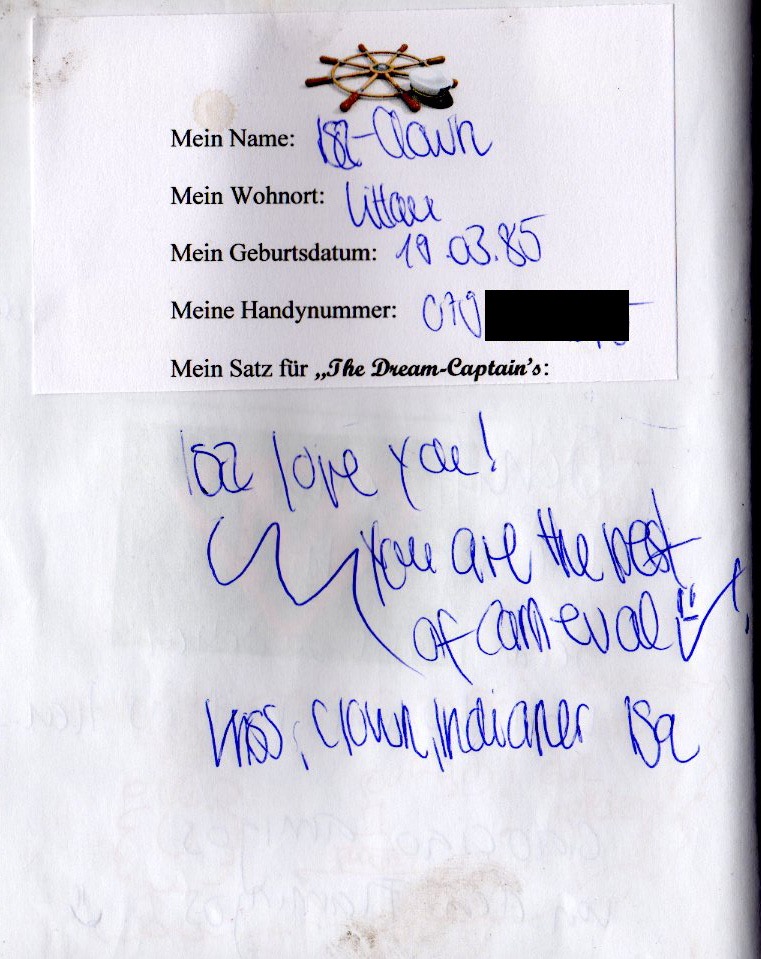 Mein Name: Isa-Clown
Mein Wohnort: Littau
Mein Geburtsdatum: 19.03.85
Meine Handynummer: 079
Mein Satz für „The Dream-Captain's:
Isa love you!
You are the best
of carneval
Clown, Indianer Isa